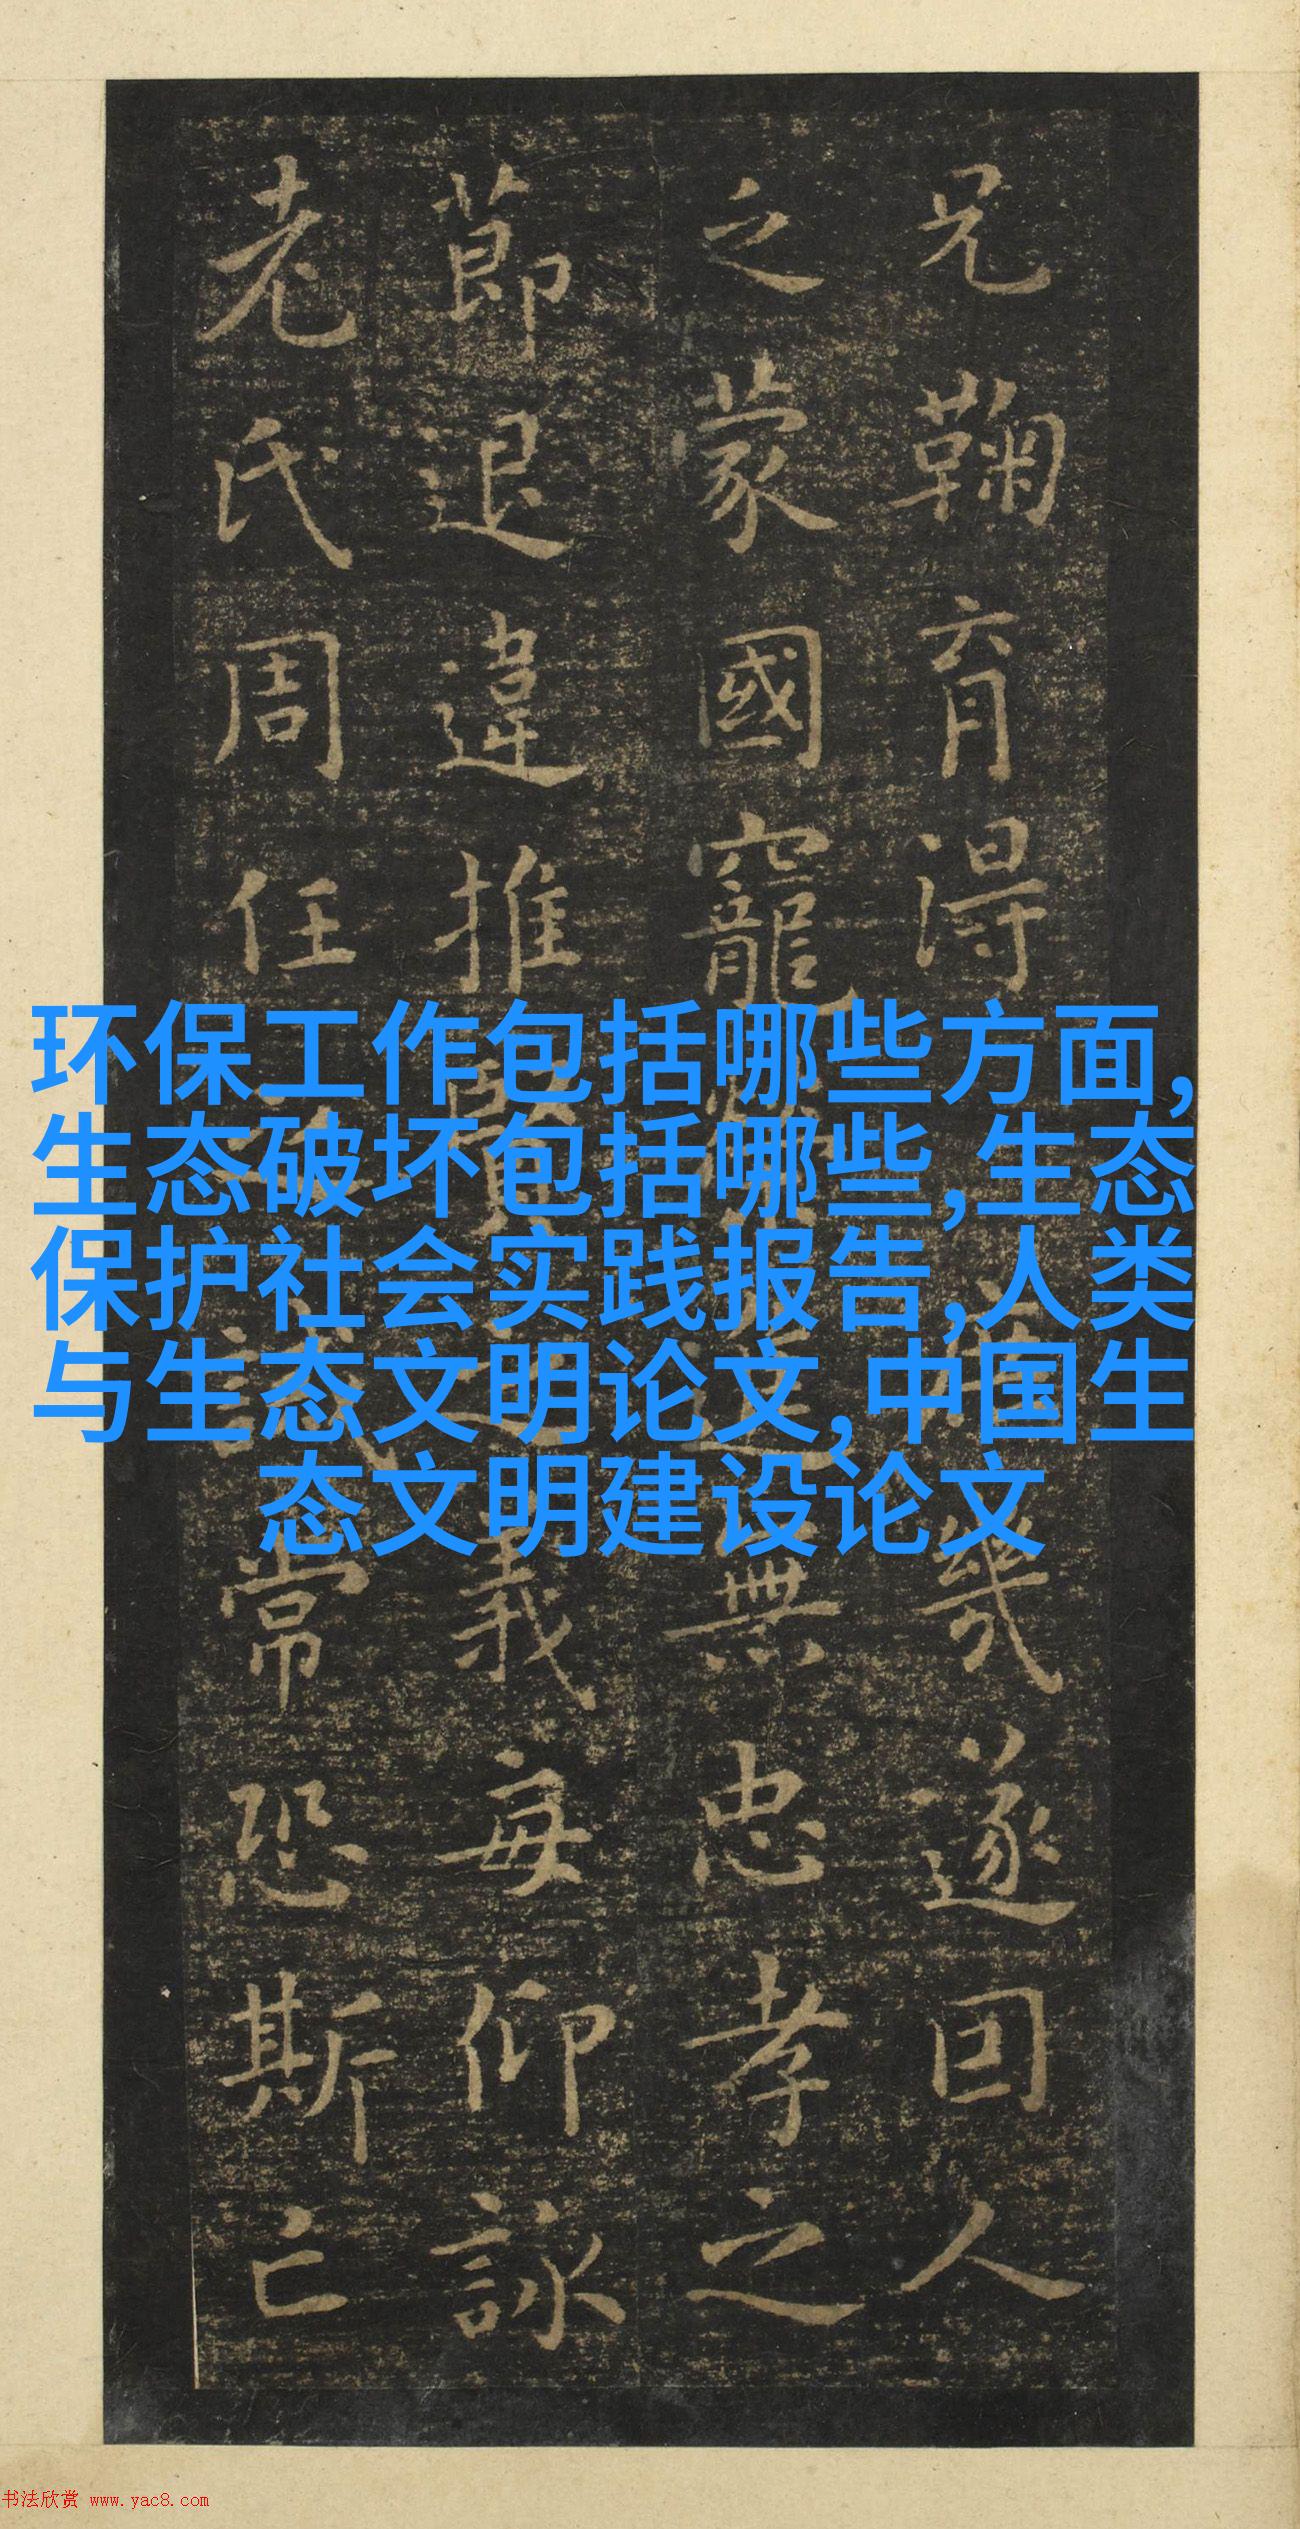 兄鞠育得幾遂因人
之蒙國寵榮進無忠孝之
節退違推賢之義每仰詠
老氏周任之誡常恐斯亡
环保工作包括哪些方面,
生态破坏包括哪些,生态
保护社会实践报告,人类
与生态文明论文,中国生
态文明建设论文
书法欣赏 www.yac8.com